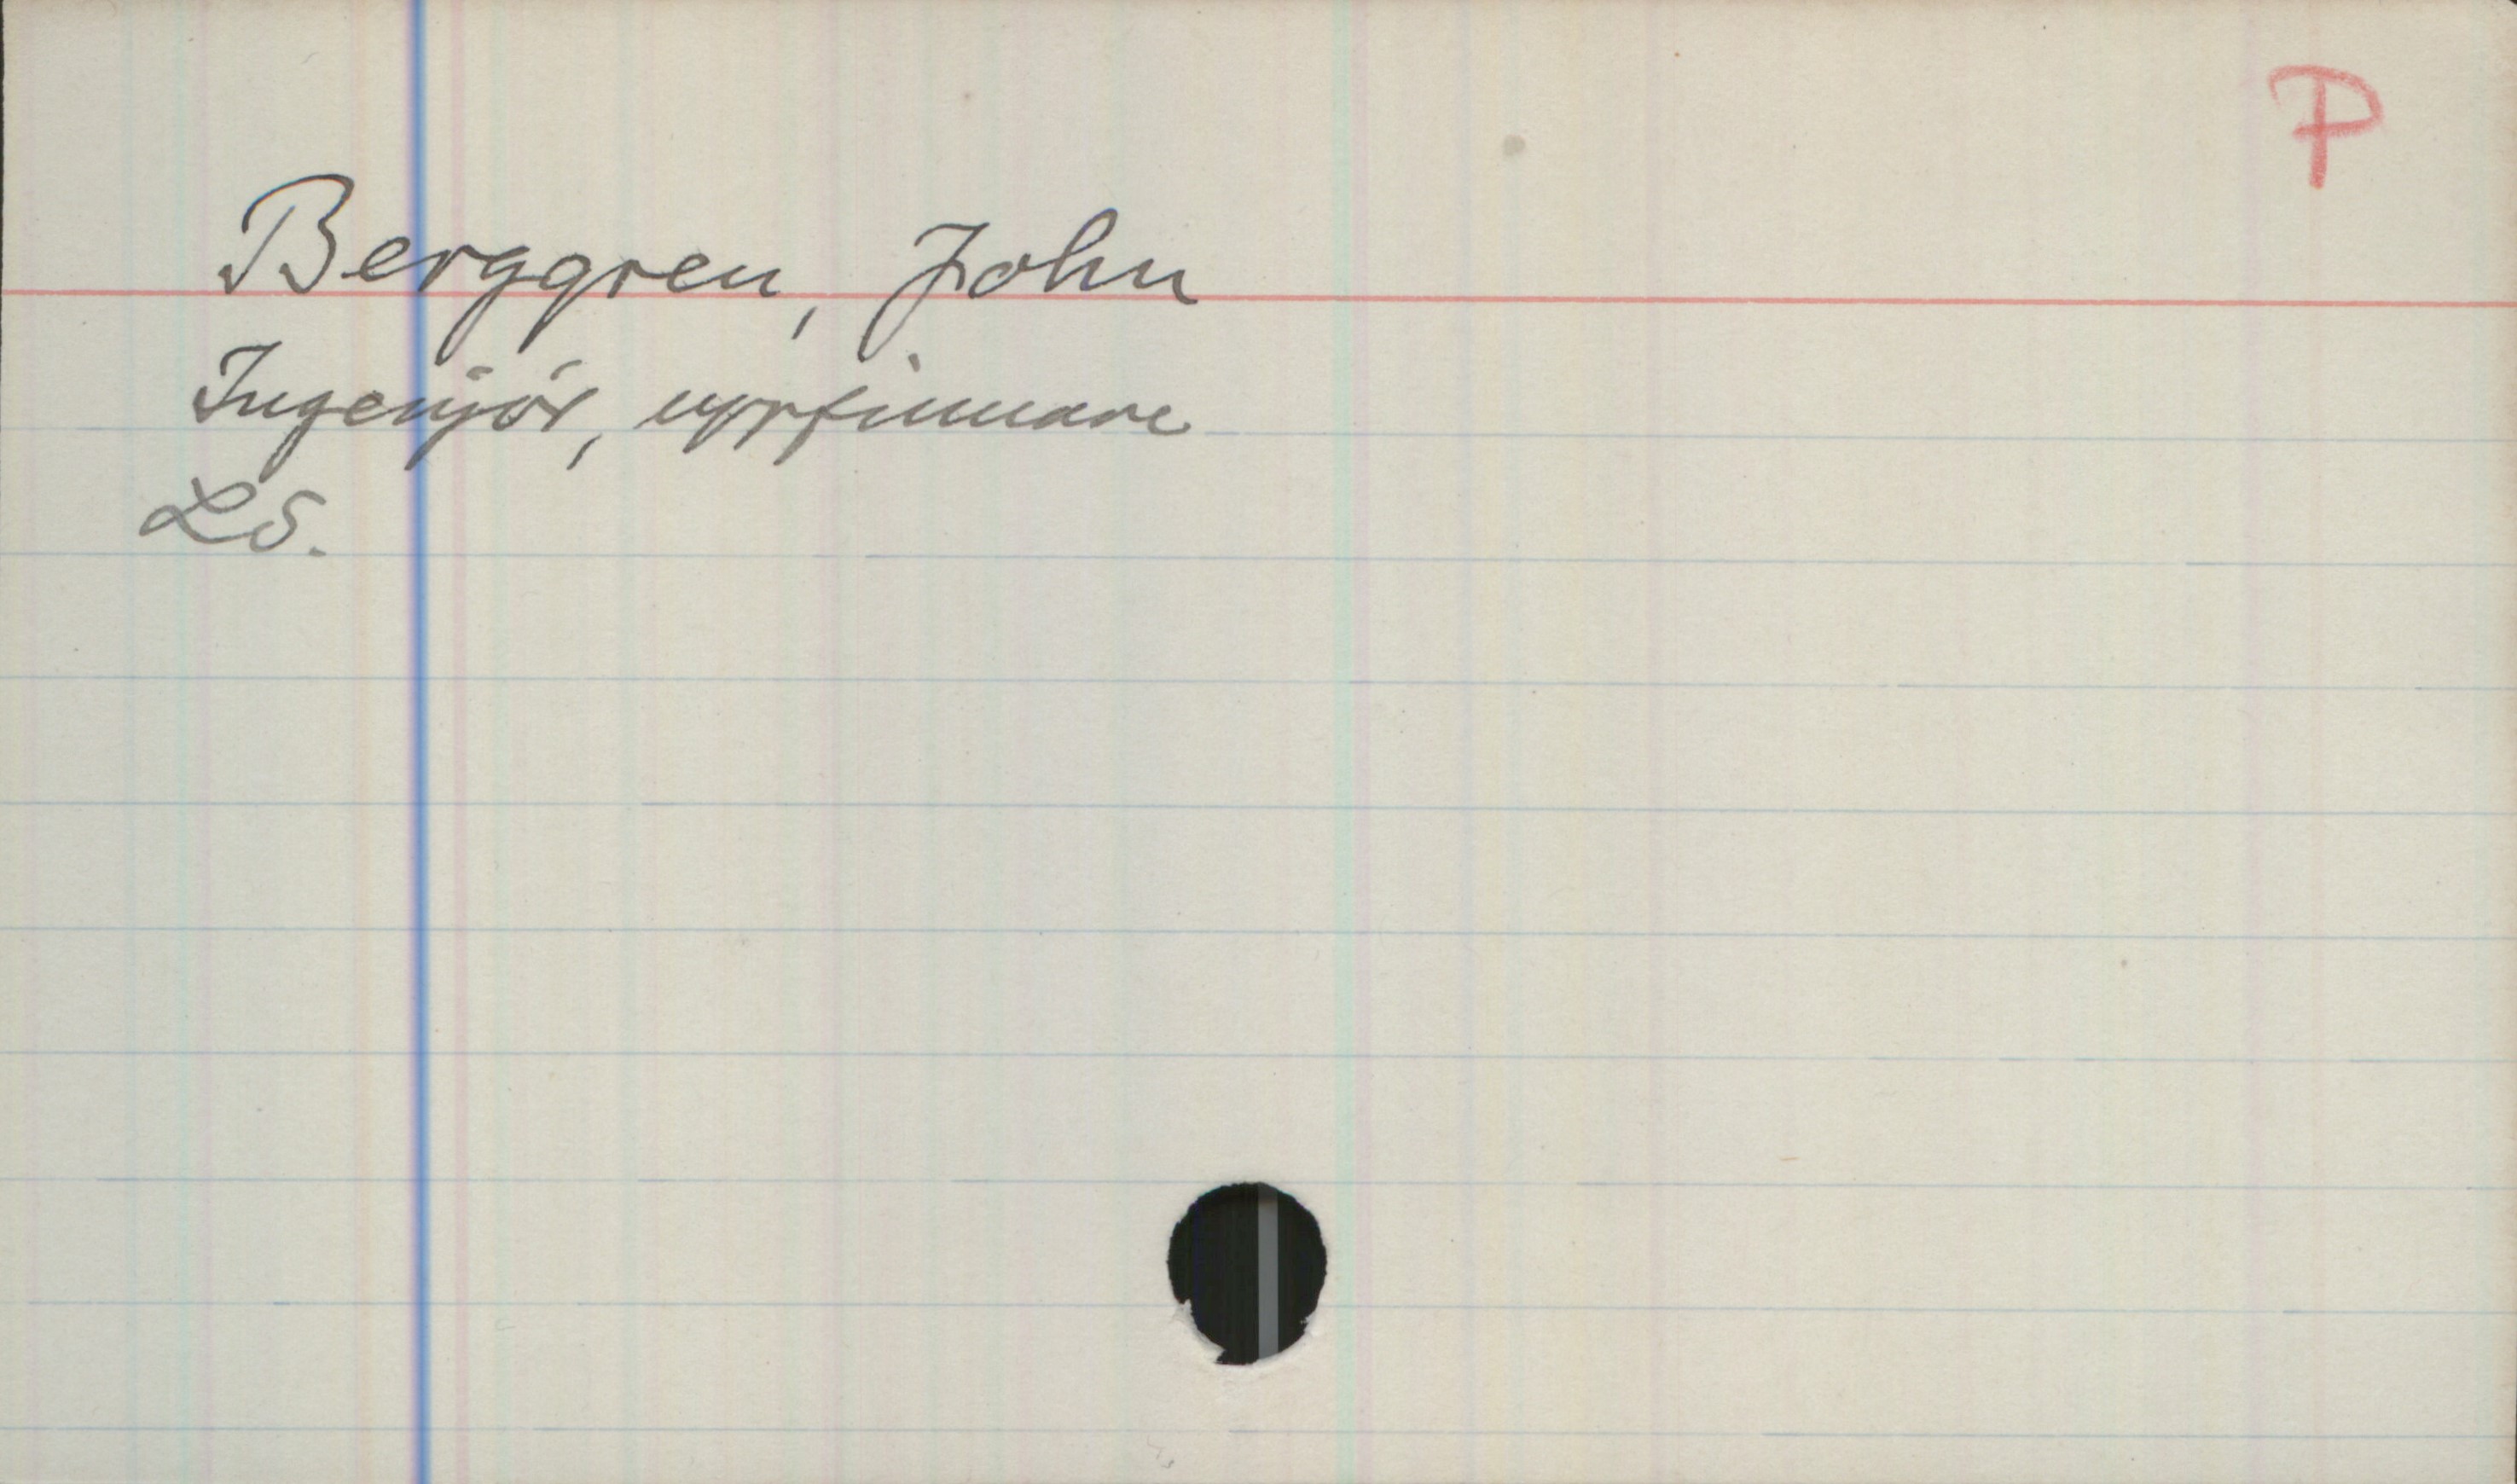 P
Berggren, John
Ingenjör, uppfinnare
LS.